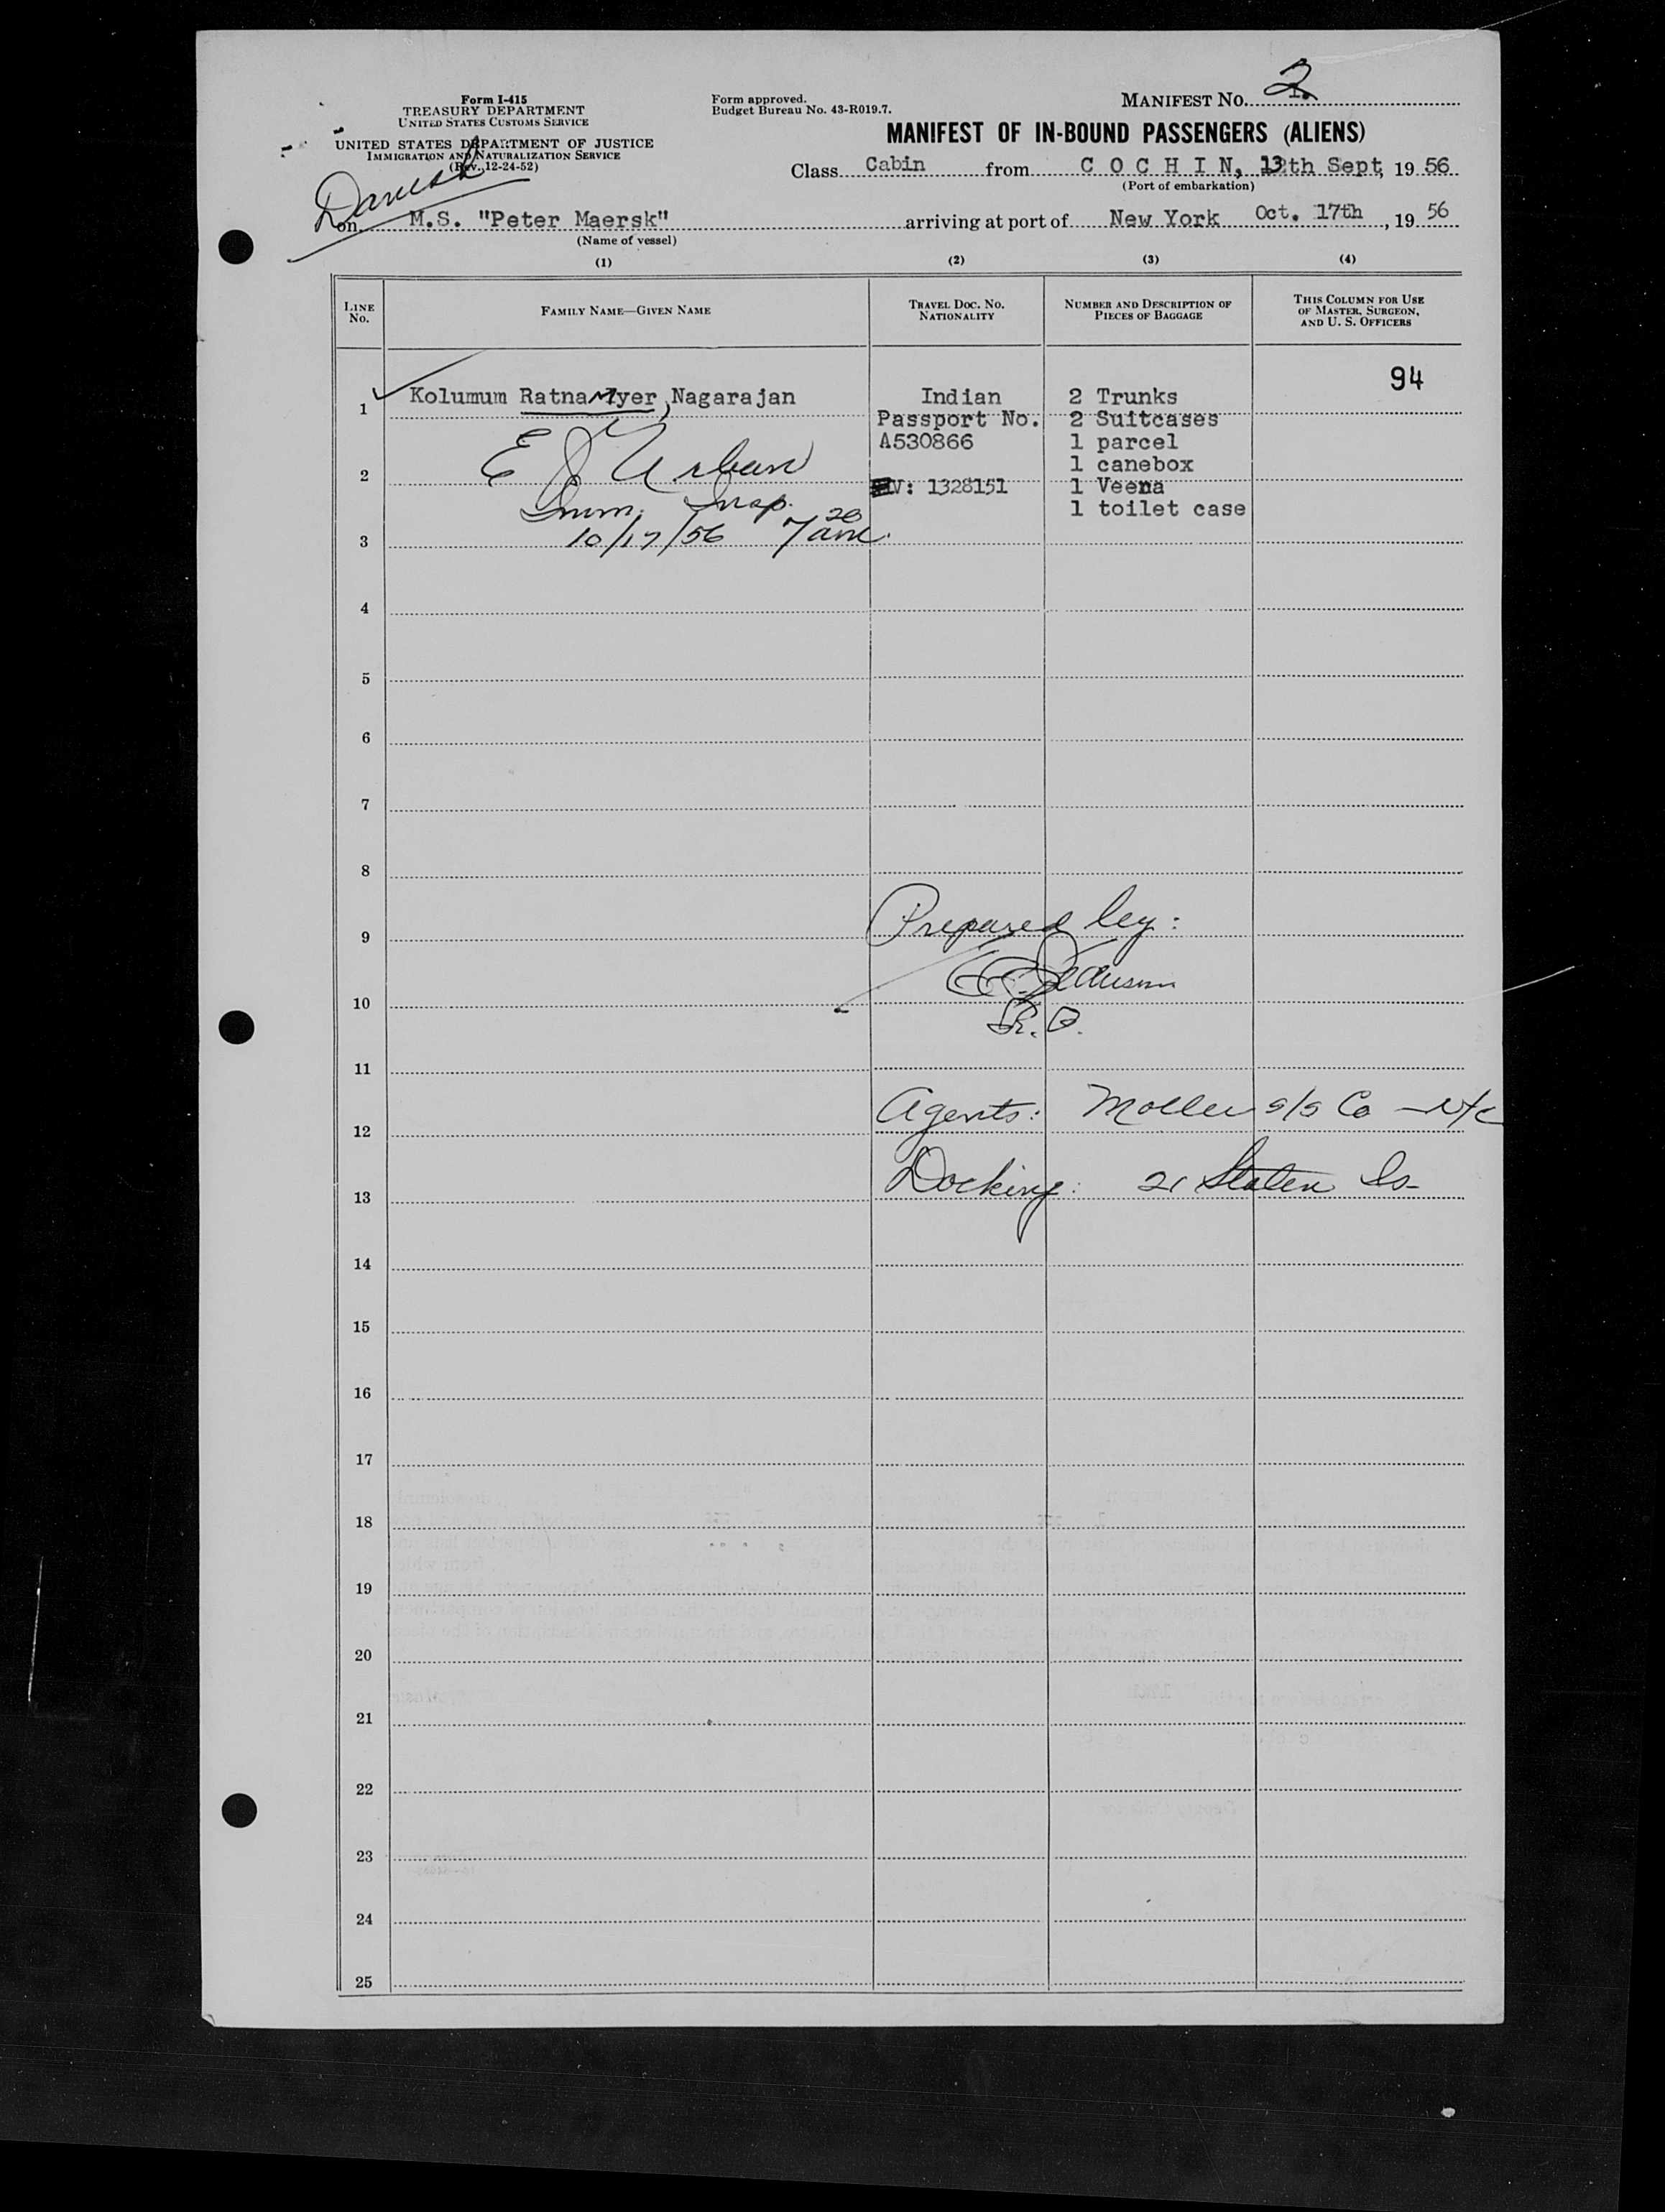 Form I-415
TREASURY DEPARTMENT
UNITED STATES CUSTOMS SERVICE
UNITED STATES DEPARTMENT OF JUSTICE
IMMIGRATION AND NATURALIZATION SERVICE
(Rev. 12-24-52)
Danish
Form approved.
Budget Bureau No. 43-R019.7.
MANIFEST NO. 2
MANIFEST OF IN-BOUND PASSENGERS (ALIENS)
Class Cabin from C O C H I N, 13th Sept, 19 56
(Port of embarkation)
on M.S. "Peter Maersk" arriving at port of New York Oct. 17th, 19 56
(Name of vessel)
(1) (2) (3) (4)
LINE No. FAMILY NAME—GIVEN NAME TRAVEL DOC. NO. NATIONALITY NUMBER AND DESCRIPTION OF PIECES OF BAGGAGE THIS COLUMN FOR USE OF MASTER, SURGEON, AND U. S. OFFICERS
94
1 Kolumum Ratnamyer, Nagarajan Indian 2 Trunks
Passport No. 2 Suitcases
A530866 1 parcel
E J Urban 1 canebox
2 V: 1328151 1 Veena
Imm. Insp. 1 toilet case
3 10/17/56 7 20 am.
4
5
6
7
8
9 Prepared by:
10
11
12 Agents: Moller s/s Co
13 Docking: 21 Staten Is
14
15
16
17
18
19
20
21
22
23
24
25